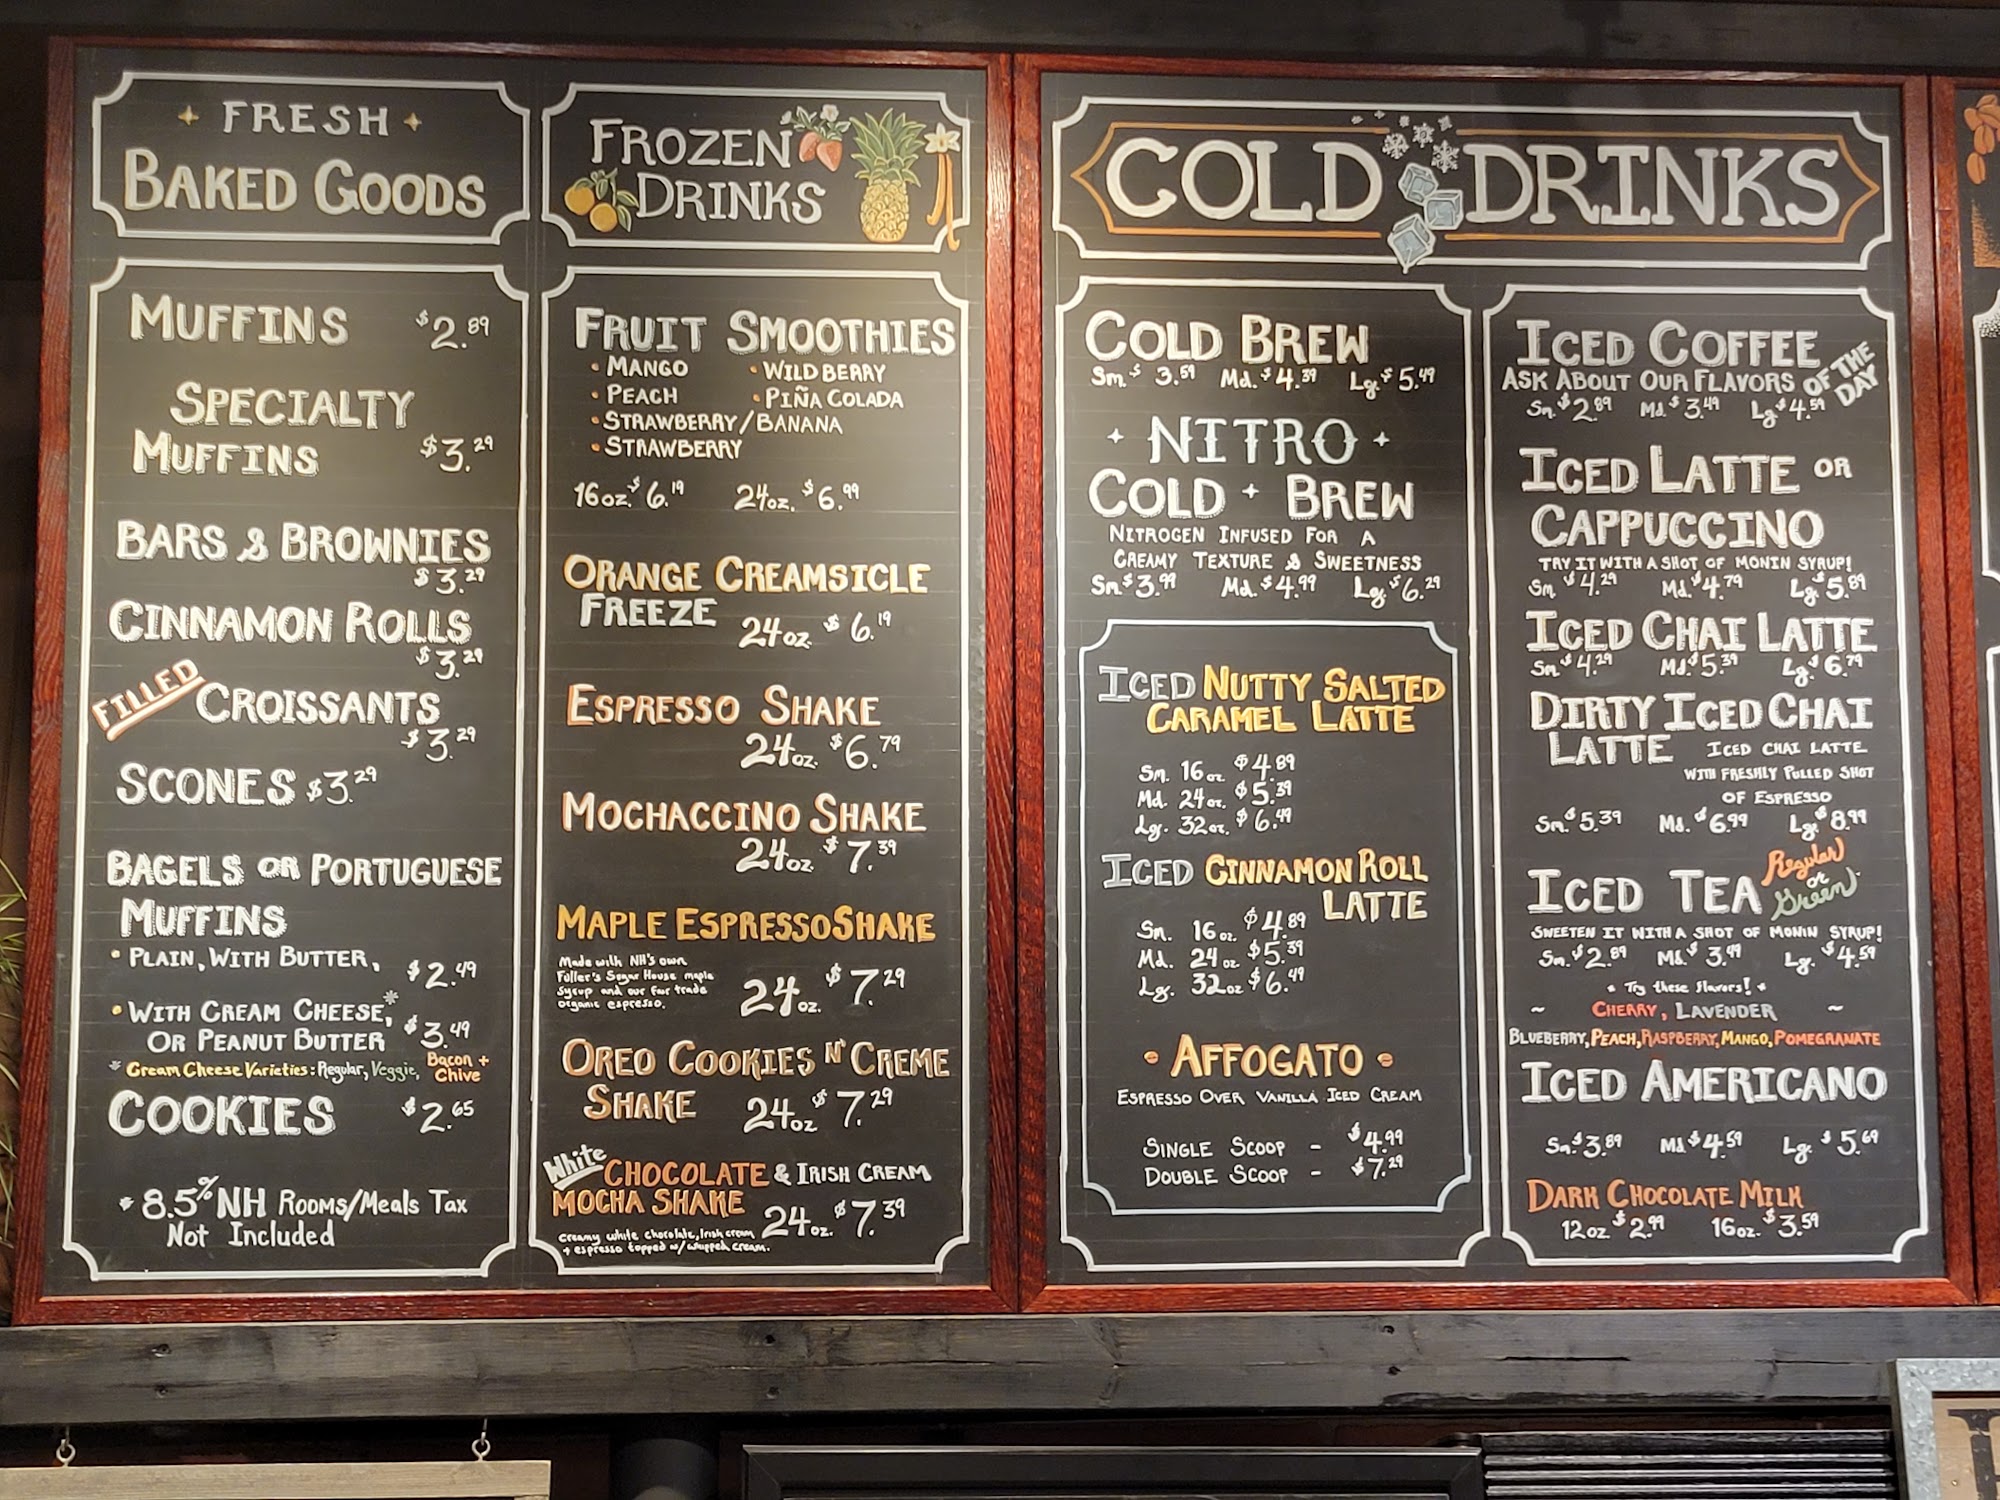 FRESH
BAKED GOODS
MUFFINS $2.89
SPECIALTY
MUFFINS $3.29
BARS & BROWNIES
$3.29
CINNAMON ROLLS
$3.29
FILLED CROISSANTS
$3.29
SCONES $3.29
BAGELS OR PORTUGUESE
MUFFINS
• PLAIN, WITH BUTTER, $2.49
• WITH CREAM CHEESE,*
OR PEANUT BUTTER $3.49
* Cream Cheese Varieties: Regular, Veggie, Bacon +
Chive
COOKIES $2.65
* 8.5% NH ROOMS/MEALS TAX
Not Included
FROZEN
DRINKS
FRUIT SMOOTHIES
• MANGO • WILD BERRY
• PEACH • PIÑA COLADA
• STRAWBERRY/BANANA
• STRAWBERRY
16oz. $6.19 24oz. $6.99
ORANGE CREAMSICLE
FREEZE 24oz. $6.19
ESPRESSO SHAKE
24oz. $6.79
MOCHACCINO SHAKE
24oz $7.39
MAPLE ESPRESSO SHAKE
Made with NH's own
Fuller's Sugar House maple
syrup and our fair trade
organic espresso.
24oz. $7.29
OREO COOKIES N' CREME
SHAKE 24oz $7.29
White CHOCOLATE & IRISH CREAM
MOCHA SHAKE 24oz. $7.39
creamy white chocolate, Irish cream
+ espresso topped w/ whipped cream.
COLD DRINKS
COLD BREW
Sm. $3.59 Md. $4.39 Lg. $5.49
NITRO
COLD BREW
NITROGEN INFUSED FOR A
CREAMY TEXTURE & SWEETNESS
Sm. $3.99 Md. $4.99 Lg. $6.29
ICED NUTTY SALTED
CARAMEL LATTE
Sm. 16oz. $4.89
Md. 24oz. $5.39
Lg. 32oz. $6.49
ICED CINNAMON ROLL
LATTE
Sm. 16oz. $4.89
Md. 24oz $5.39
Lg. 32oz $6.49
AFFOGATO
ESPRESSO OVER VANILLA ICED CREAM
SINGLE SCOOP - $4.99
DOUBLE SCOOP - $7.29
ICED COFFEE
ASK ABOUT OUR FLAVORS OF THE
DAY
Sm. $2.89 Md. $3.49 Lg. $4.59
ICED LATTE OR
CAPPUCCINO
TRY IT WITH A SHOT OF MONIN SYRUP!
Sm. $4.29 Md. $4.79 Lg. $5.89
ICED CHAI LATTE
Sm. $4.29 Md. $5.39 Lg. $6.79
DIRTY ICED CHAI
LATTE ICED CHAI LATTE
WITH FRESHLY PULLED SHOT
OF ESPRESSO
Sm. $5.39 Md. $6.99 Lg. $8.99
ICED TEA Regular
or
Green
SWEETEN IT WITH A SHOT OF MONIN SYRUP!
Sm. $2.89 Md. $3.49 Lg. $4.59
* Try these flavors! *
~ CHERRY, LAVENDER ~
BLUEBERRY, PEACH, RASPBERRY, MANGO, POMEGRANATE
ICED AMERICANO
Sm. $3.89 Md. $4.59 Lg. $5.69
DARK CHOCOLATE MILK
12oz $2.99 16oz. $3.59